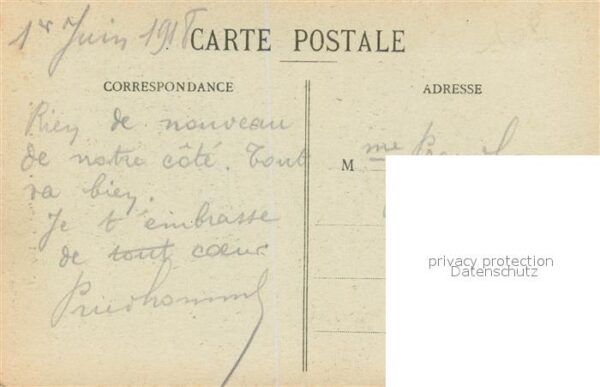 1er Juin 1918
CARTE POSTALE
CORRESPONDANCE
ADRESSE
Rien de nouveau
de notre côté. Tout
va bien.
Je t'embrasse
de tout cœur
Prudhomme
M me
privacy protection
Datenschutz